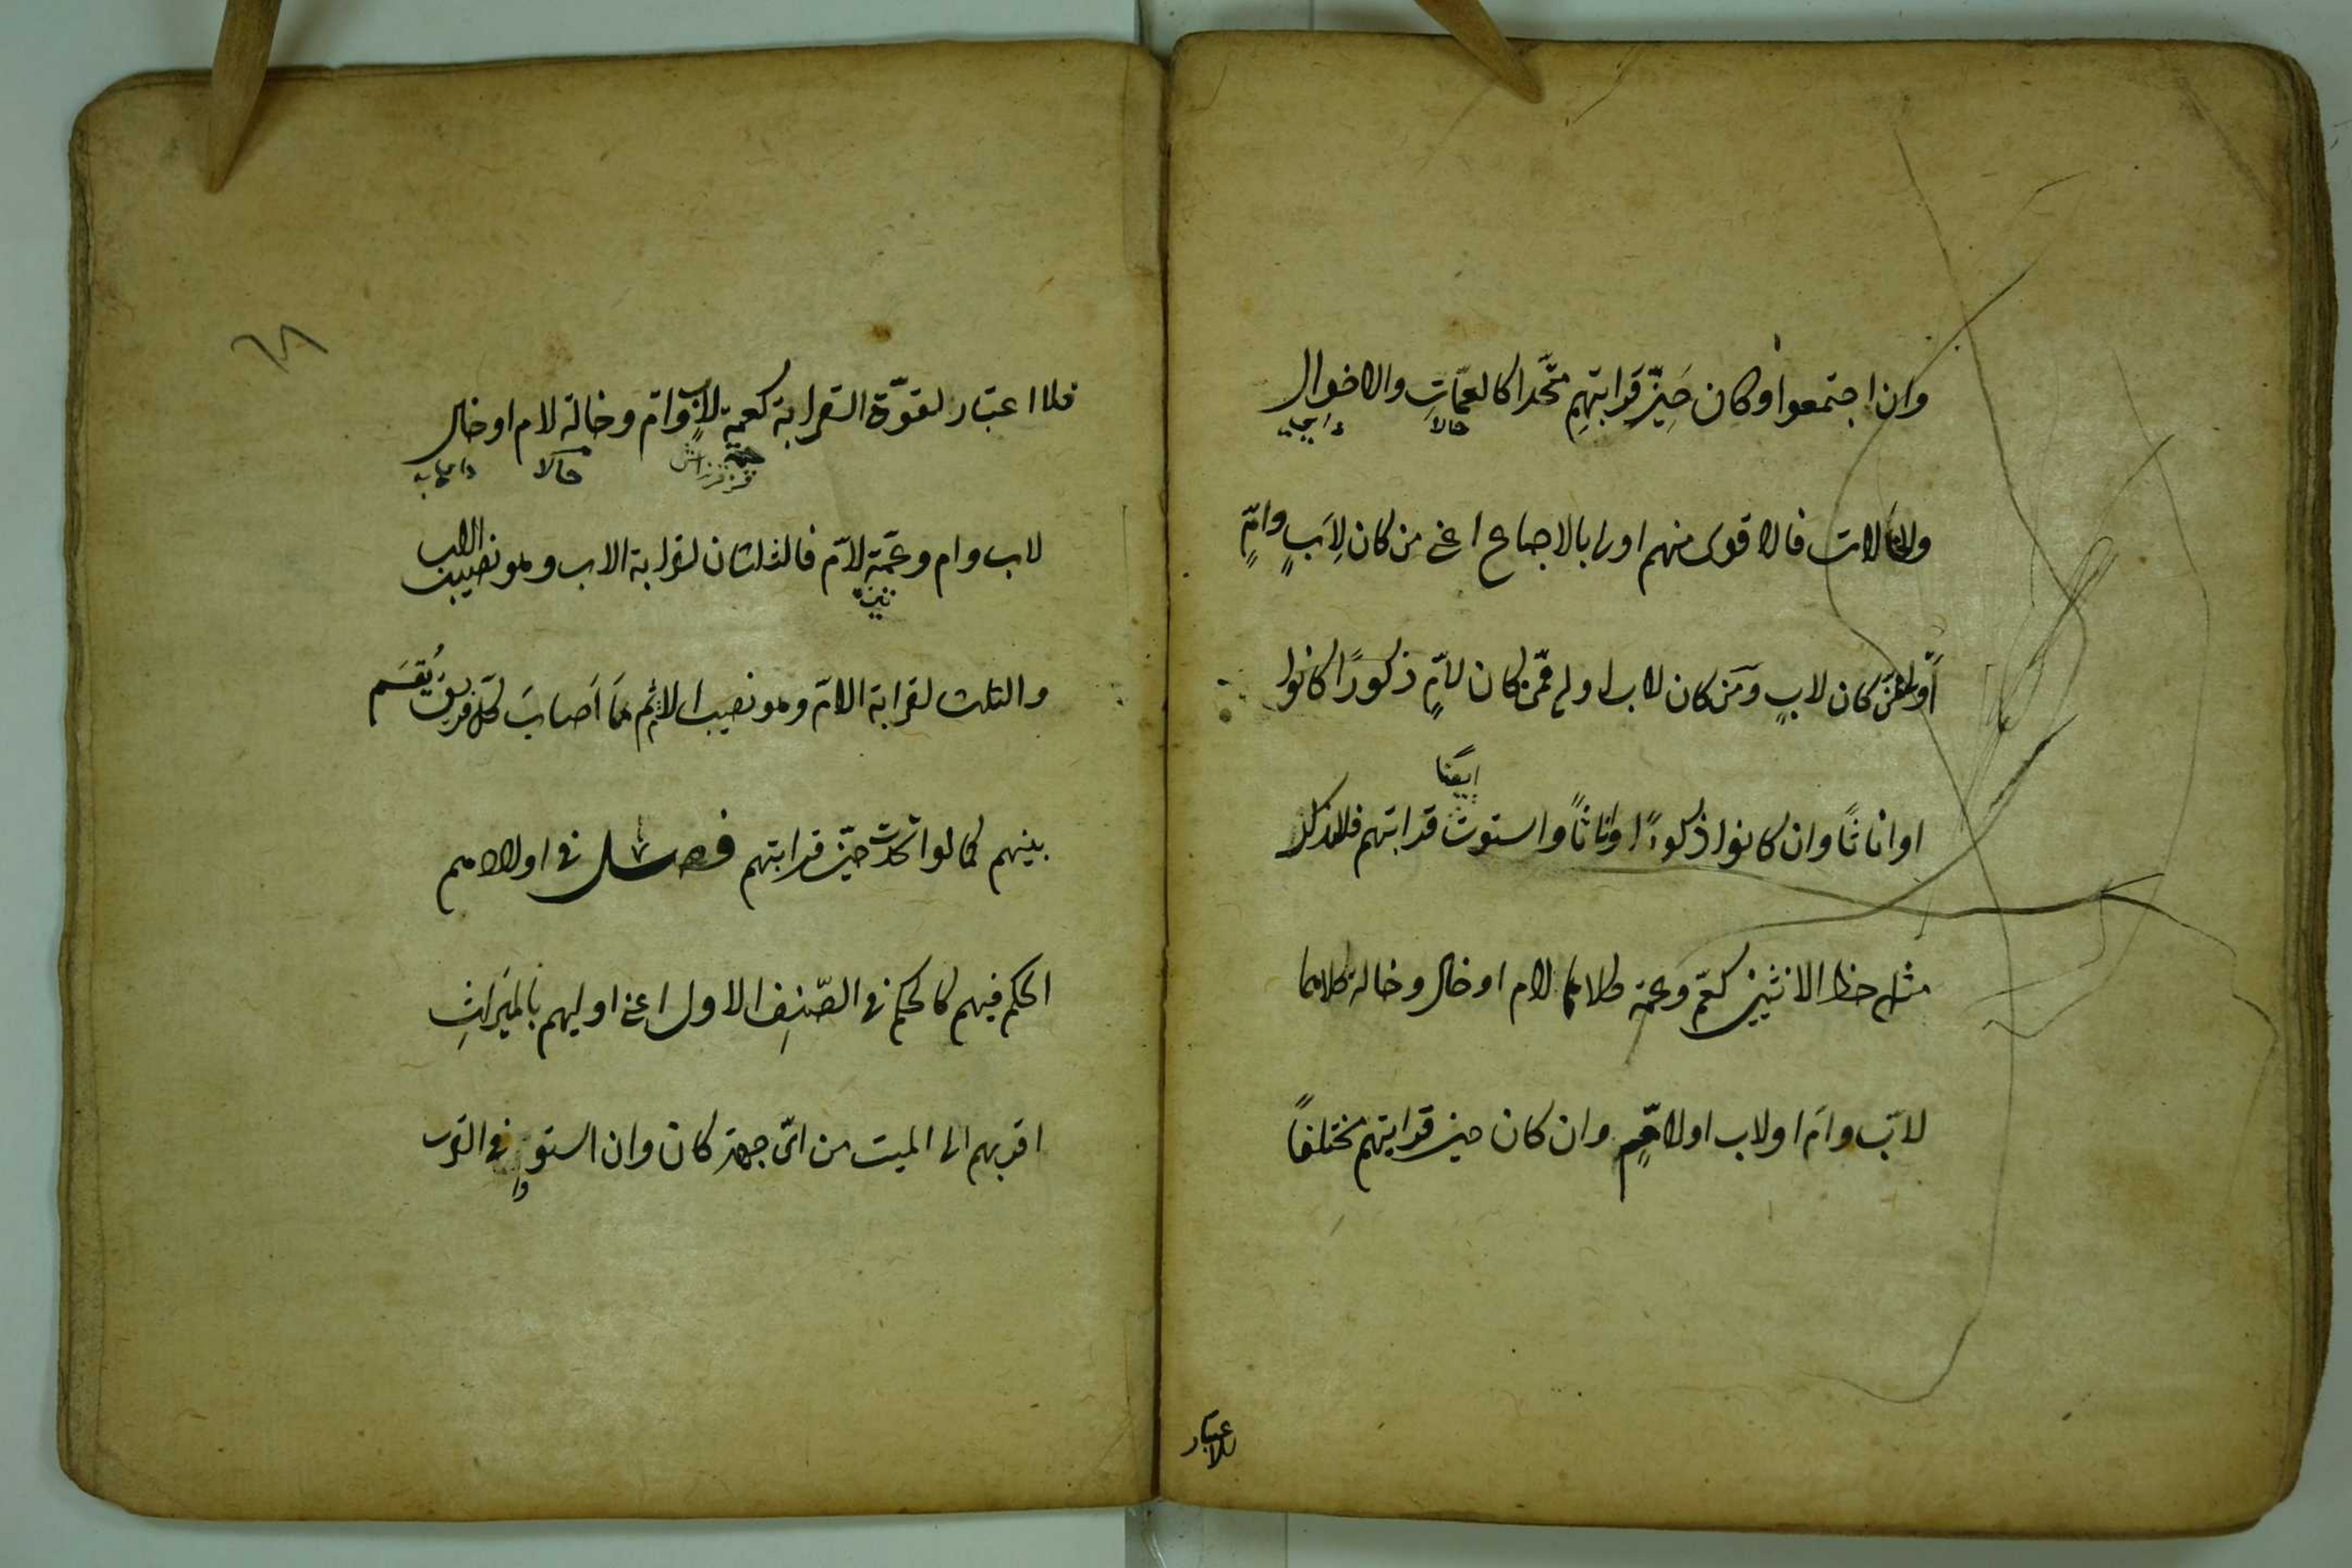 وان اجتمعوا وكان حَيِّزُ قَرابتهِم متّحدا كالعمّاتِ والاخوال
والخالات فالاقوى منهم اولى بالاجماع اعنى من كان لِاَبٍ وامّ
اَولى ممّن كان لابٍ ومَن كان لاب اولى ممّن كان لامٍّ ذكورًا كانوا
ايضًا
او اناثًا وان كانوا ذكورًا واناثًا واستوت قرابتهم فللذكر
مثل حظ الانثيين كعمّ وعمّة كلاهما لام او خال وخالة كلاهما
لابّ وامّ او لاب او لامّ وان كان حيز قرابتهم مختلفًا
فلا اعتبار
٦٨
فلا اعتبار لقوّة القرابة كعمة لابٍ وامّ وخالة لام او خال
خالا
لاب وام وعمّة لامّ فالثلثان لقرابة الاب وهو نصيب الاب
والثلث لقرابة الامّ وهو نصيب الام ثم مَا اَصابَ لكل فريق يُقسَم
بينهم كما لو اتحدت حيّز قرابتهم فصل فى اولادهم
الحكم فيهم كالحكم فى الصّنِف الاول اعنى اوليهم بالميَراثِ
اقربهم الى الميت من اىّ جهة كان وان استووا فى القرب